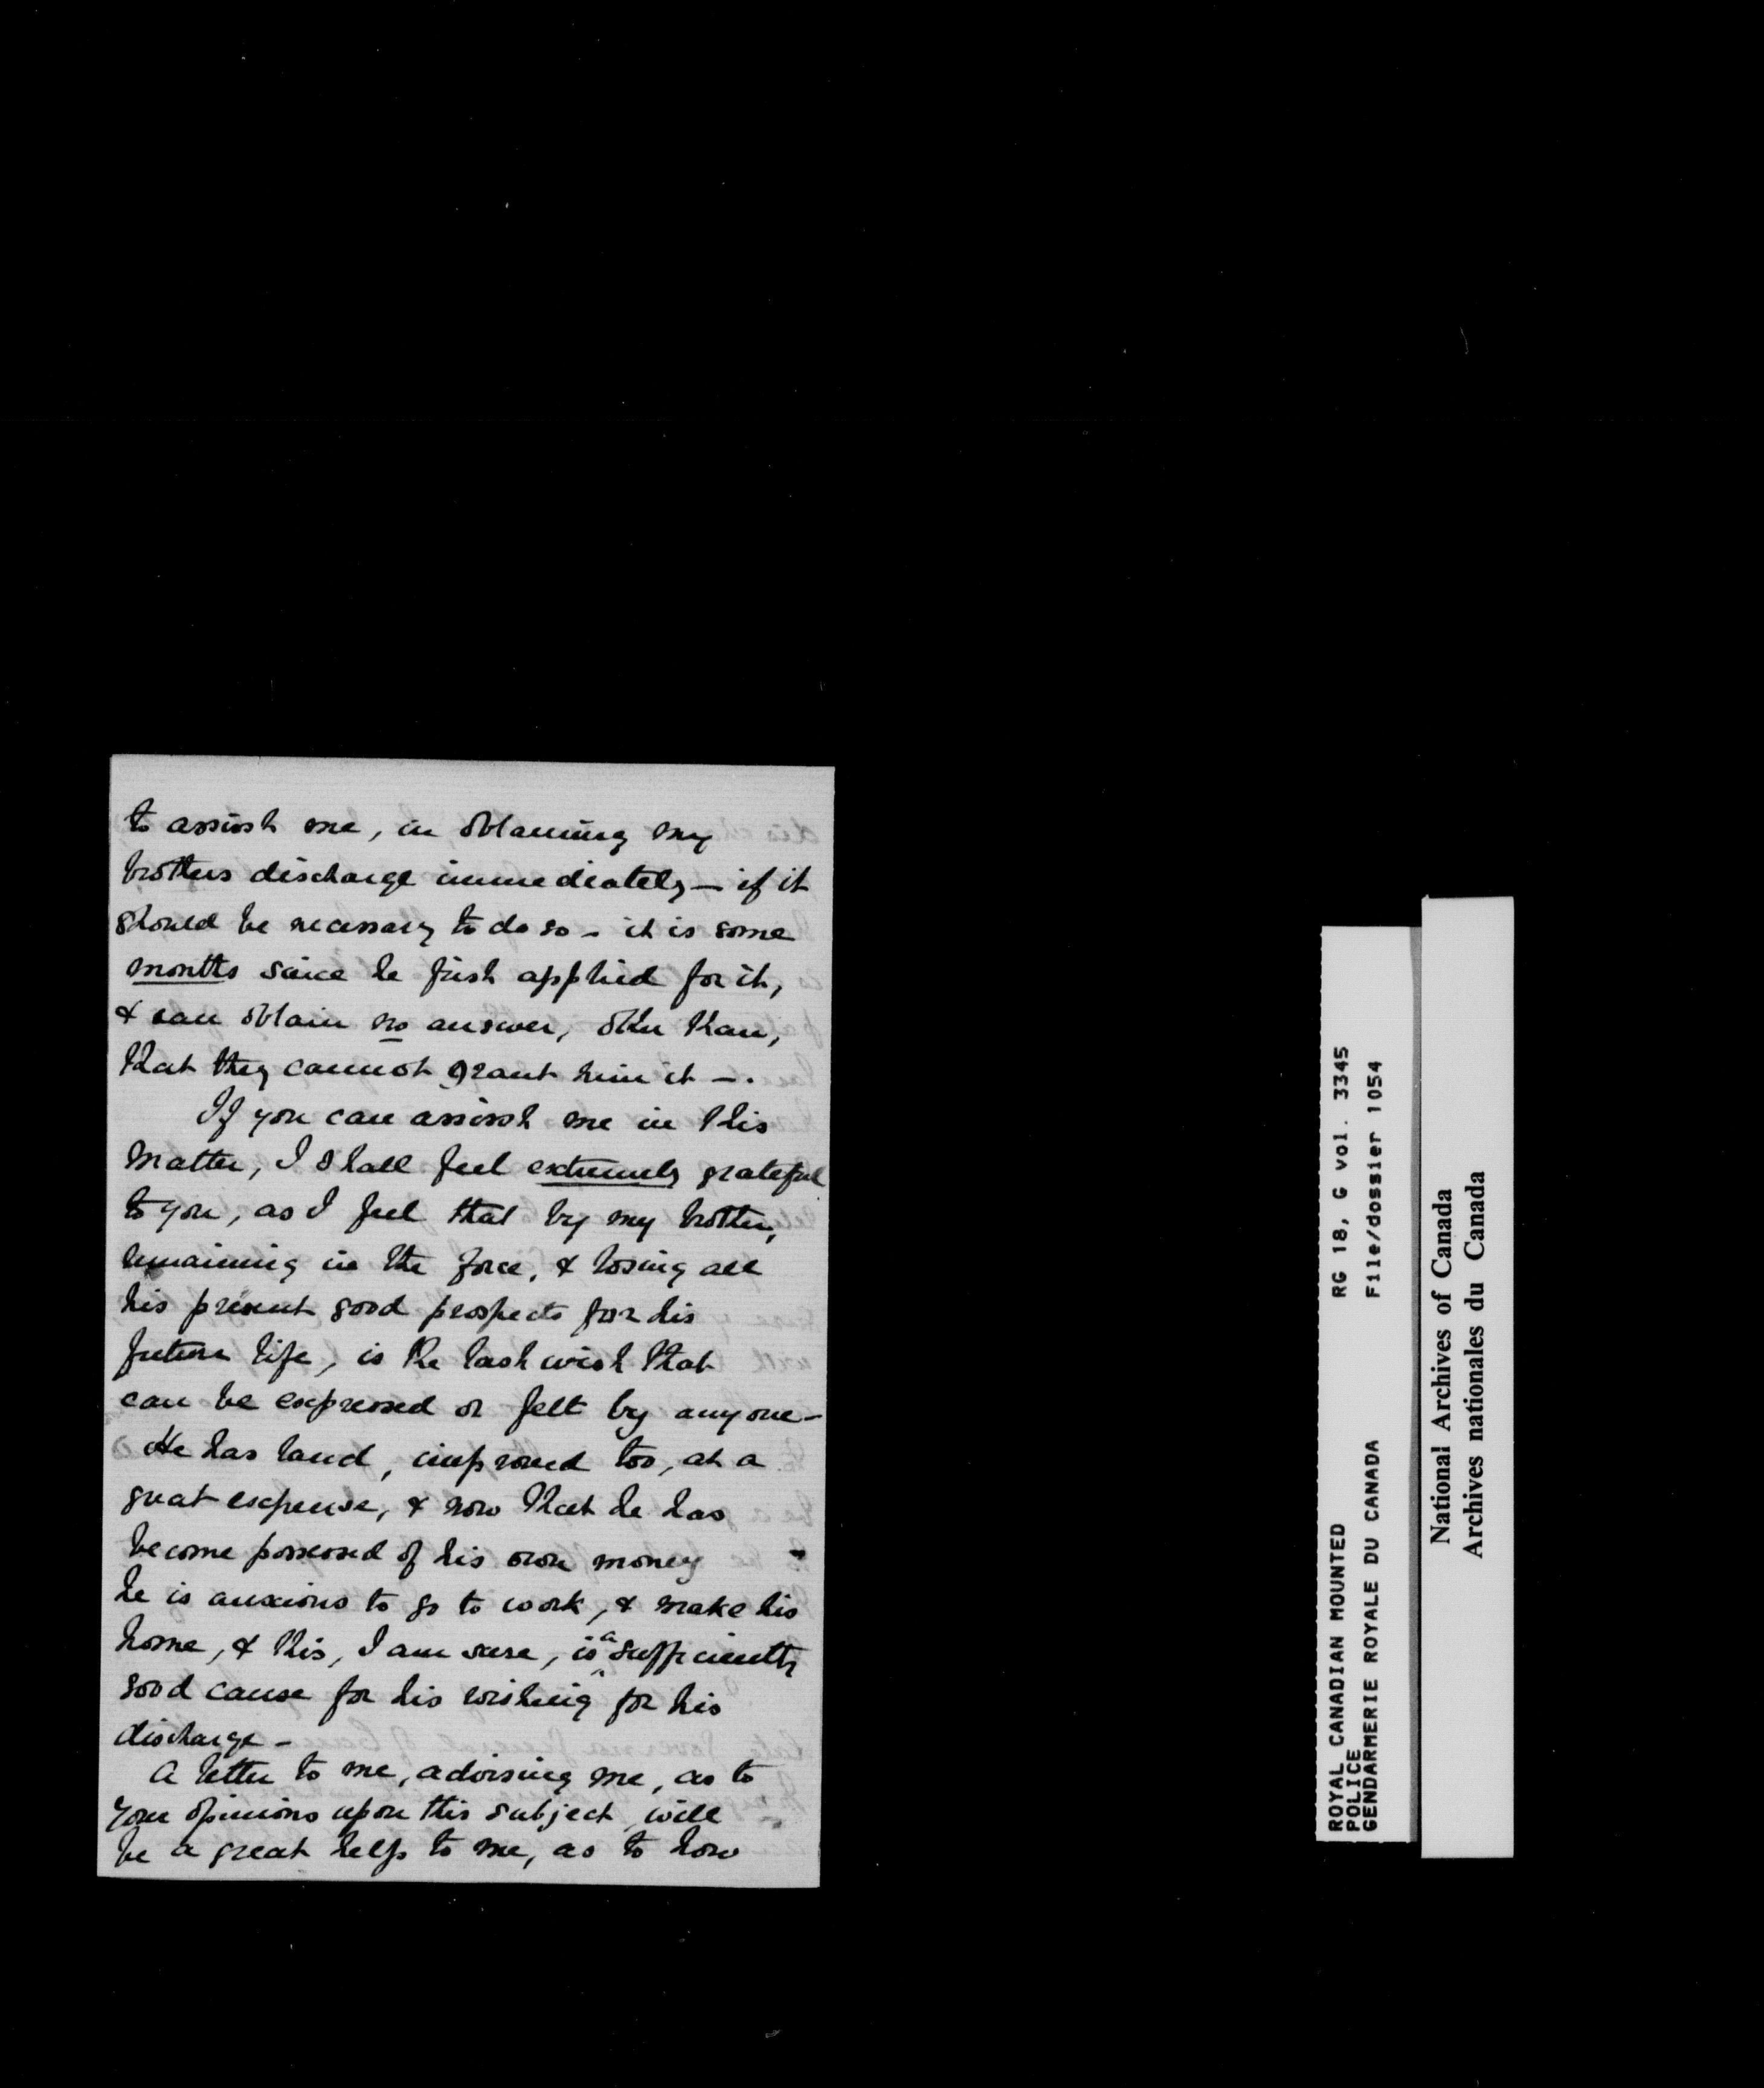 to assist me, in obtaining my
brothers discharge immediately — if it
should be necessary to do so – it is some
months since he first applied for it,
& can obtain no answer, other than,
that they cannot grant him it —.
If you can assist me in this
matter, I shall feel extremely grateful
to you, as I feel that by my brother,
remaining in the force, & losing all
his present good prospects for his
future life, is the last wish that
can be expressed or felt by anyone –
He has land, improved too, at a
great expense, & now that he has
become possessed of his own money
he is anxious to go to work, & make his
home, & this, I am sure, is a sufficiently
good cause for his wishing for his
discharge –
A letter to me, advising me, as to
your opinions upon this subject, will
be a great help to me, as to how
ROYAL CANADIAN MOUNTED RG 18, G vol. 3345
POLICE File/dossier 1054
GENDARMERIE ROYALE DU CANADA
National Archives of Canada
Archives nationales du Canada